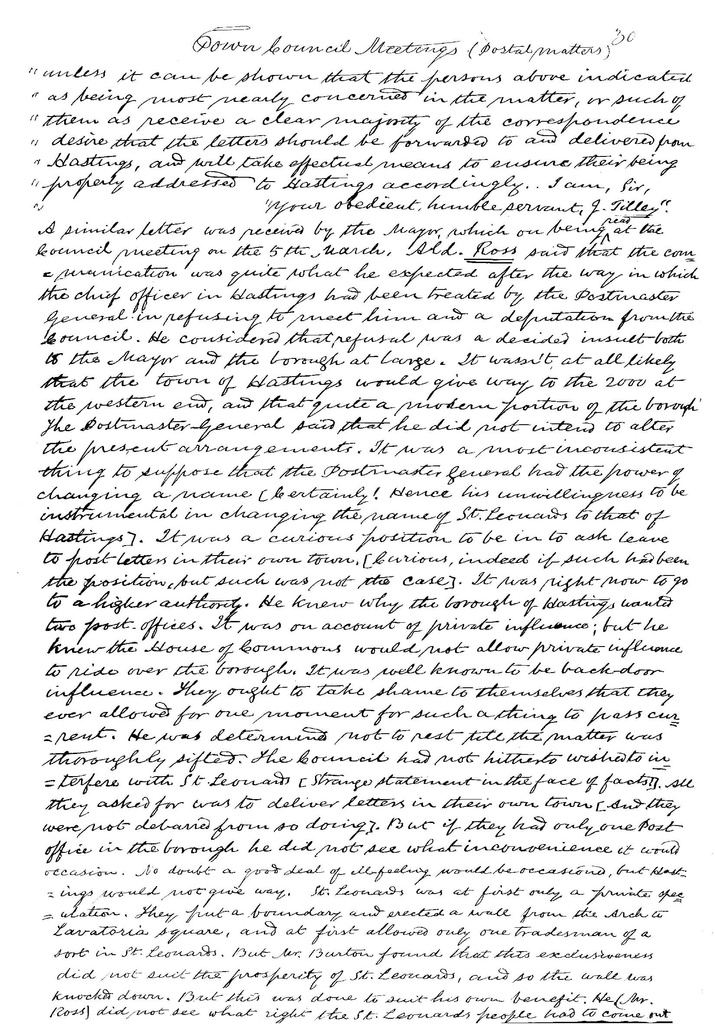 Town Council Meetings (Postal matters) 30
" unless it can be shown that the persons above indicated
" as being most nearly concerned in the matter, or such of
" them as receive a clear majority of the correspondence
" desire that the letters should be forwarded to and delivered from
" Hastings, and will take effectual means to ensure their being
" properly addressed to Hastings accordingly. I am, Sir,
" "Your obedient, humble servant, J. Tilley".
A similar letter was received by the Mayor, which on being read at the
Council meeting on the 5th March, Ald. Ross said that the com=
=munication was quite what he expected after the way in which
the chief officer in Hastings had been treated by the Postmaster
General in refusing to meet him and a deputation from the
Council. He considered that refusal was a decided insult both
to the Mayor and the borough at large. It wasn't at all likely
that the town of Hastings would give way to the 2000 at
the western end, and that quite a modern portion of the borough
The Postmaster-General said that he did not intend to alter
the present arrangements. It was a most inconsistent
thing to suppose that the Postmaster General had the power of
changing a name [Certainly! Hence his unwillingness to be
instrumental in changing the name of St. Leonards to that of
Hastings]. It was a curious position to be in to ask leave
to post letters in their own town. [Curious, indeed if such had been
the position, but such was not the case]. It was right now to go
to a higher authority. He knew why the borough of Hastings wanted
two post-offices. It was on account of private influence; but he
knew the House of Commons would not allow private influence
to ride over the borough. It was well known to be back-door
influence. They ought to take shame to themselves that they
ever allowed for one moment for such a thing to pass cur=
=rent. He was determined not to rest till the matter was
thoroughly sifted. The Council had not hitherto wished to in=
=terfere with St Leonards [Strange statement in the face of facts!]. All
they asked for was to deliver letters in their own town [And they
were not debarred from so doing]. But if they had only one Post
office in the borough he did not see what inconvenience it would
occasion. No doubt a good deal of ill-feeling would be occasioned, but Hast-
=ings would not give way. St. Leonards was at first only a private spec=
=ulation. They put a boundary and erected a wall from the Arch to
Lavatoria square, and at first allowed only one tradesman of a
sort in St. Leonards. But Mr. Burton found that this exclusiveness
did not suit the prosperity of St. Leonards, and so the wall was
knocked down. But this was done to suit his own benefit. He (Mr.
Ross) did not see what right the St. Leonards people had to come out